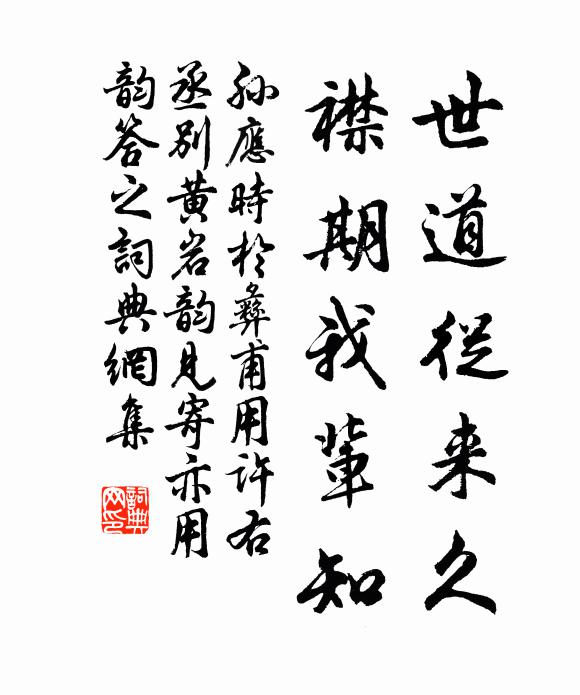 世道從来久
襟期我輩知
孫應時於彝甫用許右
丞別黄岩韵見寄亦用
韵答之詞典網集
詞典
网印